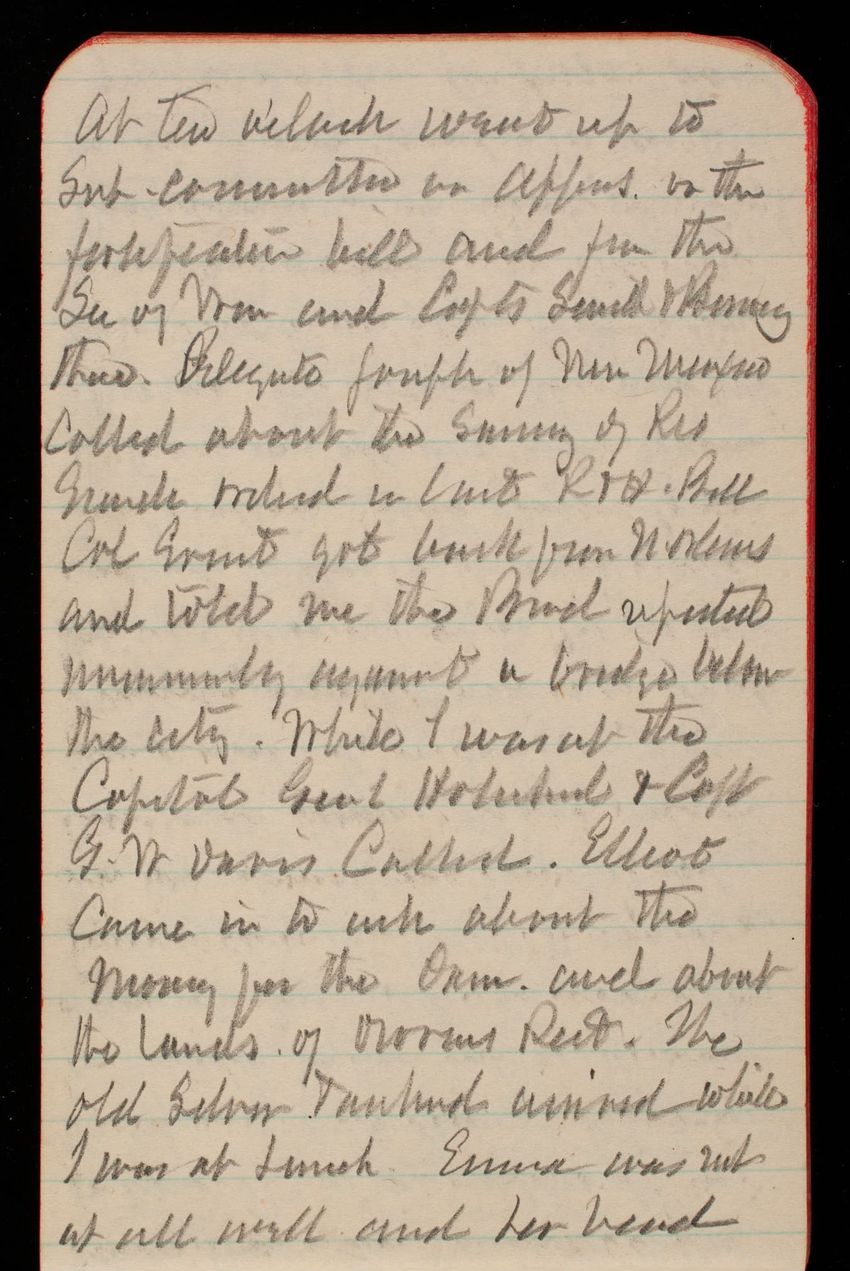 At ten o'clock went up to
Sub-committee on Appns. on the
fortification bill and for the
Sec of War and Capts Smith &
there. Delegate Joseph of New Mexico
Called about the Survey of Rio
Grande ordered in last R & H. Bill
Col Grant got back from N Orleans
and told me the Board reported
unanimously against a bridge below
the city. While I was at the
Capitol Genl Holabird & Capt
G. W Davis Called. Elliot
Came in to ask about the
Money for the Dam. and about
the lands. of Rect. The
old Silver Tankard arrived while
I was at Lunch. Emma was not
at all well and her head